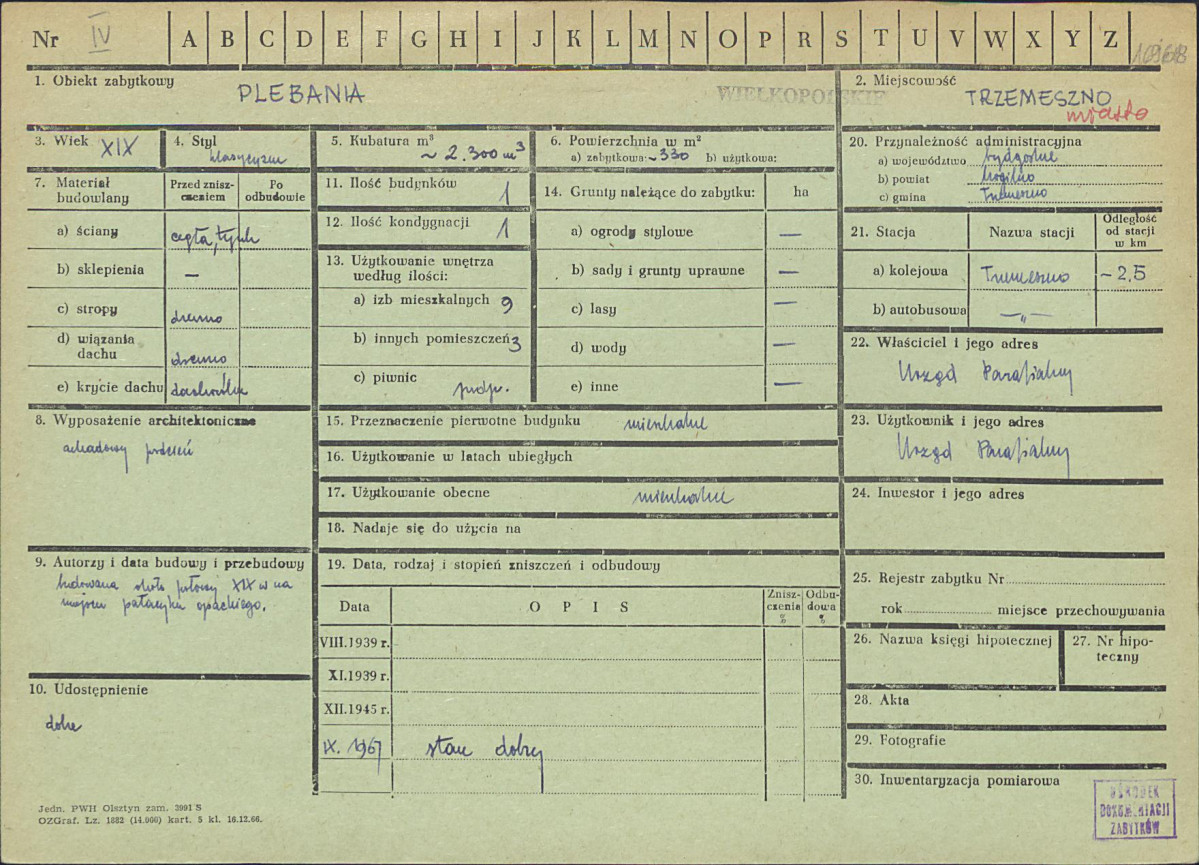 Nr IV A B C D E F G H I J K L M N O P R S T U V W X Y Z
1. Obiekt zabytkowy
PLEBANIA
WIELKOPOLSKIE
2. Miejscowość
TRZEMESZNO
miasto
3. Wiek XIX
4. Styl
klasycyzm
5. Kubatura m³
~ 2.300 m³
6. Powierzchnia w m²
a) zabytkowa: ~330 b) użytkowa:
20. Przynależność administracyjna
a) województwo bydgoskie
b) powiat Mogilno
c) gmina Trzemeszno
7. Materiał budowlany
Przed zniszczeniem
Po odbudowie
a) ściany cegła, tynk
b) sklepienia —
c) stropy drewno
d) wiązania dachu drewno
e) krycie dachu dachówka
11. Ilość budynków 1
12. Ilość kondygnacji 1
13. Użytkowanie wnętrza
według ilości:
a) izb mieszkalnych 9
b) innych pomieszczeń 3
c) piwnic podp.
14. Grunty należące do zabytku: ha
a) ogrody stylowe —
b) sady i grunty uprawne —
c) lasy —
d) wody —
e) inne —
21. Stacja
Nazwa stacji
Odległość
od stacji
w km
a) kolejowa Trzemeszno ~2,5
b) autobusowa —„—
22. Właściciel i jego adres
Urząd Parafialny
8. Wyposażenie architektoniczne
arkadowy podcień
15. Przeznaczenie pierwotne budynku mieszkalne
16. Użytkowanie w latach ubiegłych
17. Użytkowanie obecne mieszkalne
18. Nadaje się do użycia na
23. Użytkownik i jego adres
Urząd Parafialny
24. Inwestor i jego adres
9. Autorzy i data budowy i przebudowy
budowana około połowy XIX w na
miejscu pałacyku opackiego.
10. Udostępnienie
dobre
19. Data, rodzaj i stopień zniszczeń i odbudowy
Data
OPIS
Zniszczenia
%
Odbudowa
%
VIII.1939 r.
XI.1939 r.
XII.1945 r.
IX. 1967 stan dobry
25. Rejestr zabytku Nr
rok miejsce przechowywania
26. Nazwa księgi hipotecznej
27. Nr hipoteczny
28. Akta
29. Fotografie
30. Inwentaryzacja pomiarowa
OŚRODEK
DOKUMENTACJI
ZABYTKÓW
Jedn. PWH Olsztyn zam. 3991 S
OZGraf. Lz. 1882 (14.000) kart. 5 kl. 16.12.66.